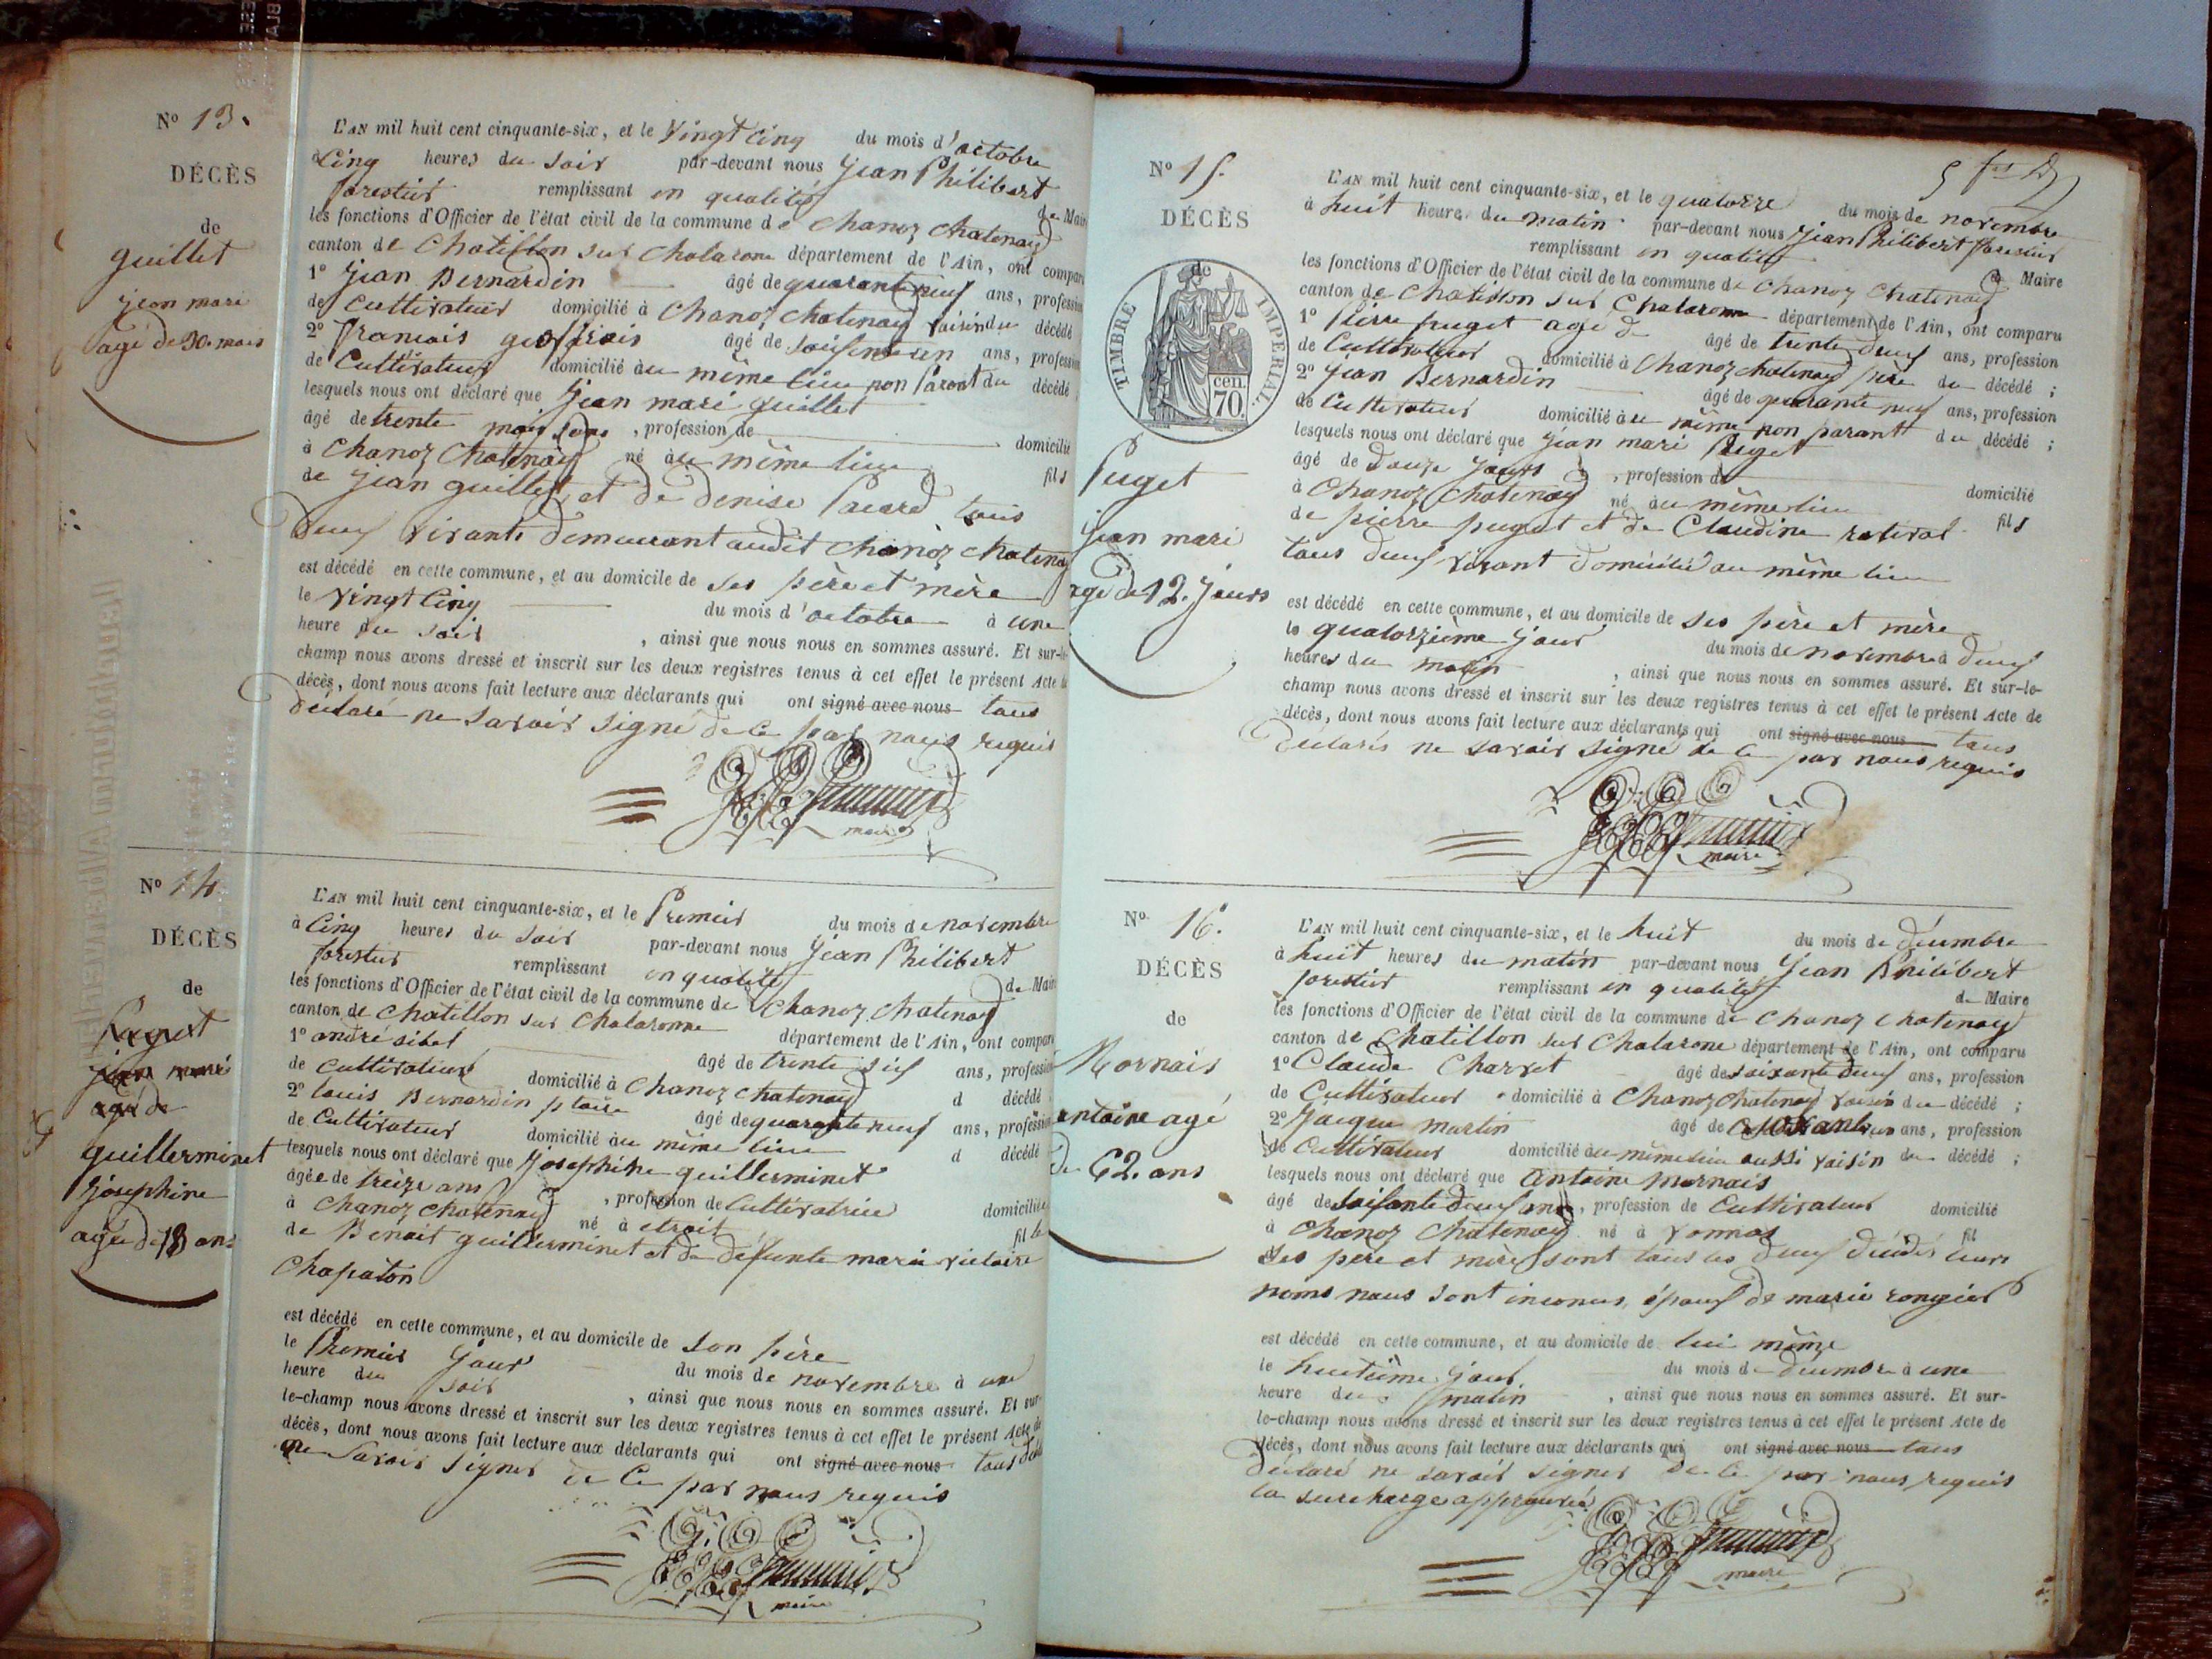 Nº 13.
DÉCÈS
de
guillet
jean mari
agé de 30 mois
L'AN mil huit cent cinquante-six, et le vingt cinq du mois d'octobre
à Cinq heures du soir par-devant nous jean Philibert
forestier remplissant en qualité de Maire
les fonctions d'Officier de l'état civil de la commune de chanoz chatenay
canton de Chatillon sur Chalarone département de l'Ain, ont comparu
1º jean Bernardin âgé de quarante neuf ans, profession
de Cultivateur domicilié à Chanoz chatenay voisin du décédé
2º francois geoffrais âgé de soisente un ans, profession
de Cultivateur domicilié au même lieu non parant du décédé
lesquels nous ont déclaré que jean mari guillet
âgé de trente mois sans , profession de domicilié
à Chanoz Chatenay né au même lieu fils
de jean guillet et de denise Pacard tous
deux vivants demeurant audit chanoz chatenay
est décédé en cette commune, et au domicile de ses père et mère
le vingt Cinq du mois d'octobre à une
heure du soir , ainsi que nous nous en sommes assuré. Et sur-le-
champ nous avons dressé et inscrit sur les deux registres tenus à cet effet le présent Acte de
décès, dont nous avons fait lecture aux déclarants qui ont signé avec nous tous
déclaré ne savoir signé de ce par nous requis
maire
Nº 14
DÉCÈS
de
Puget
jean mari
agé de
guillerminet
joséphine
agée de 13 ans
L'AN mil huit cent cinquante-six, et le Premier du mois de novembre
à Cinq heures du soir par-devant nous jean Philibert
forestier remplissant en qualité de Maire
les fonctions d'Officier de l'état civil de la commune de Chanoz chatenay
canton de Chatillon sur Chalaronne département de l'Ain, ont comparu
1º andré sibel âgé de trente six ans, profession
de cultivateur domicilié à Chanoz chatenay d décédé
2º louis Bernardin âgé de quarante neuf ans, profession
de Cultivateur domicilié au même lieu d décédé
lesquels nous ont déclaré que joséphine guillerminet
âgée de treize ans , profession de Cultivatrice domiciliée
à Chanoz chatenay né à etrait fille
de Benoit guillerminet et de défunte marie victoire
Chapaton
est décédé en cette commune, et au domicile de son père
le Premier jour du mois de novembre à une
heure du soir , ainsi que nous nous en sommes assuré. Et sur-
le-champ nous avons dressé et inscrit sur les deux registres tenus à cet effet le présent Acte de
décès, dont nous avons fait lecture aux déclarants qui ont signé avec nous tous
ne savoir signer de ce par nous requis
maire
Nº 15.
DÉCÈS
de
TIMBRE IMPERIAL.
70. cen.
Puget
jean mari
agé de 12 jours
L'AN mil huit cent cinquante-six, et le quatorze du mois de novembre
à huit heures du matin par-devant nous jean Philibert forestier
remplissant en qualité de Maire
les fonctions d'Officier de l'état civil de la commune de Chanoz Chatenay
canton de Chatillon sur Chalaronne département de l'Ain, ont comparu
1º Pierre puget agé de âgé de trente deux ans, profession
de Cultivateur domicilié à Chanoz chatenay père du décédé ;
2º jean Bernardin âgé de quarante neuf ans, profession
de Cultivateur domicilié au même non parant du décédé ;
lesquels nous ont déclaré que jean mari Puget
âgé de douze jours , profession de domicilié
à Chanoz Chatenay né au même lieu fils
de pierre puget et de Claudine rativat
tous deux vivant domicilié au même lieu
est décédé en cette commune, et au domicile de ses père et mère
le quatorzième jour du mois de novembre à deux
heures du matin , ainsi que nous nous en sommes assuré. Et sur-le-
champ nous avons dressé et inscrit sur les deux registres tenus à cet effet le présent Acte de
décès, dont nous avons fait lecture aux déclarants qui ont signé avec nous tous
déclarés ne savoir signé de ce par nous requis
maire
Nº 16.
DÉCÈS
de
Mornais
antoine agé
de 62. ans
L'AN mil huit cent cinquante-six, et le huit du mois de décembre
à huit heures du matin par-devant nous jean Philibert
forestier remplissant en qualité de Maire
les fonctions d'Officier de l'état civil de la commune de Chanoz chatenay
canton de Chatillon sur Chalarone département de l'Ain, ont comparu
1º Claude Charvet âgé de soixante deux ans, profession
de Cultivateur domicilié à Chanoz chatenay voisin du décédé ;
2º jacque martin âgé de ans, profession
de Cultivateur domicilié au même lieu aussi voisin du décédé ;
lesquels nous ont déclaré que antoine mornais
âgé de soisante deux ans , profession de Cultivateur domicilié
à Chanoz Chatenay né à vonnas fil
ses père et mère sont tous les deux décédés leurs
noms nous sont inconus, époux de marie rongier
est décédé en cette commune, et au domicile de lui même
le huitième jour du mois de décembre à une
heure du matin , ainsi que nous nous en sommes assuré. Et sur-
le-champ nous avons dressé et inscrit sur les deux registres tenus à cet effet le présent Acte de
décès, dont nous avons fait lecture aux déclarants qui ont signé avec nous tous
déclaré ne savoir signer de ce par nous requis
la surcharge approuvée
maire